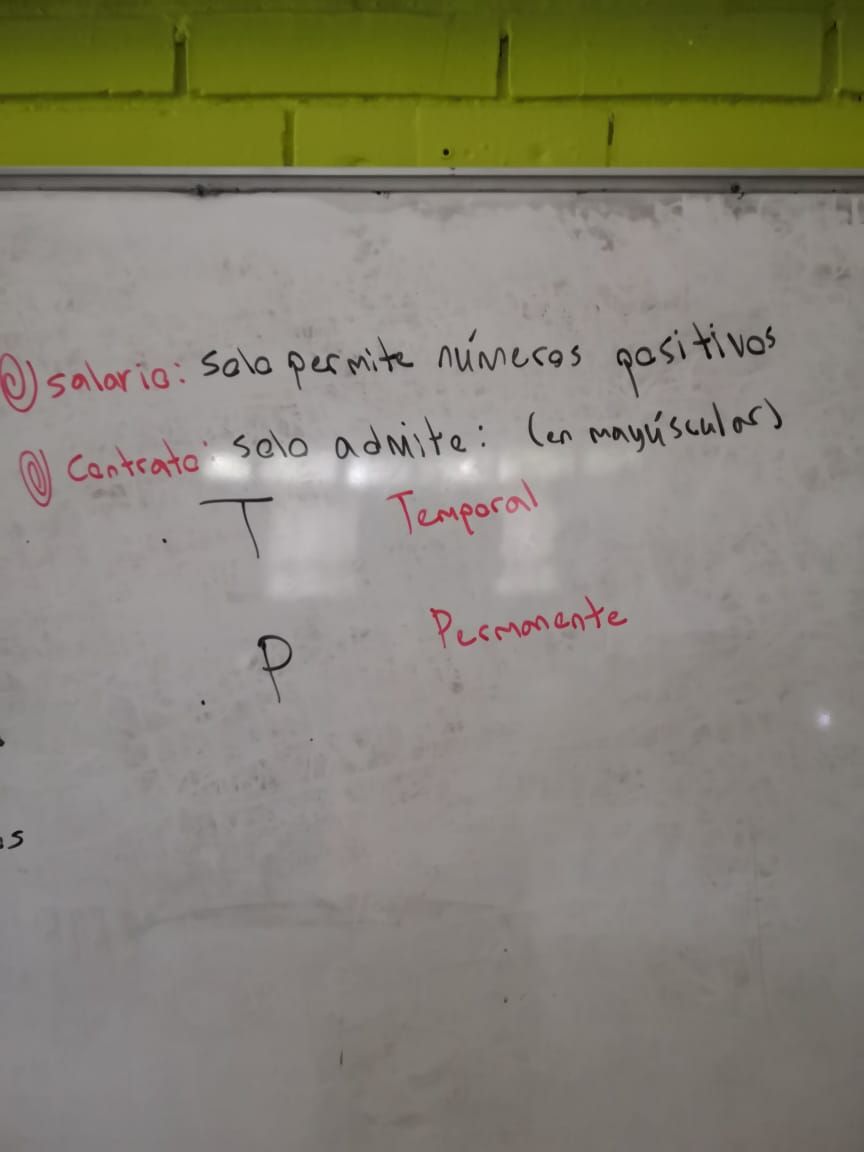 salario: solo permite números positivos
contrato: solo admite: (en mayúscular)
. T Temporal
. P Permanente